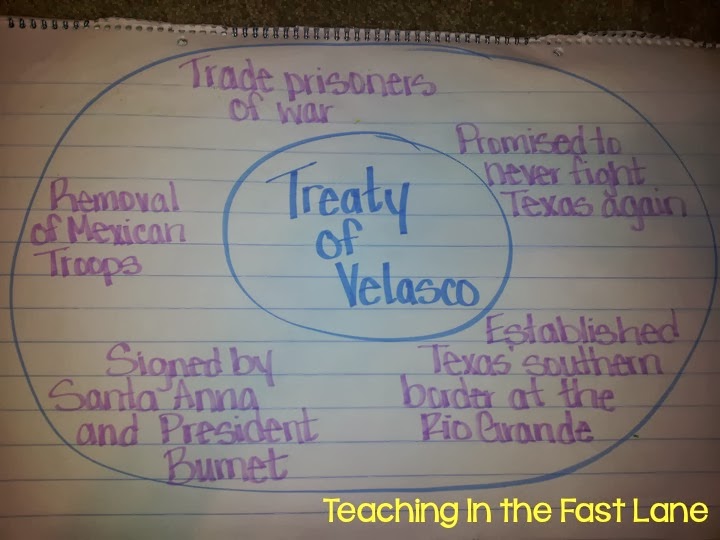 Trade prisoners
of war
Promised to
never fight
Texas again
Removal
of Mexican
Troops
Treaty
of
Velasco
Signed by
Santa Anna
and President
Burnet
Established
Texas' southern
border at the
Rio Grande
Teaching In the Fast Lane